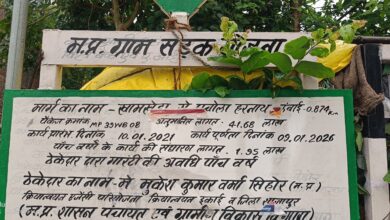 म.प्र. ग्रामीण सड़क योजना
मार्ग का नाम - खामखेड़ा से हरनाथ लंबाई- 0.874 Km
पैकेज क्रमांक MP 39WB 08 अनुमानित लागत- 41.68 लाख
कार्य प्रारंभ दिनांक 10.01.2021 कार्य पूर्णता दिनांक 09.01.2026
पाँच वर्षो के कार्य की संधारण लागत - 1.95 लाख
ठेकेदार द्वारा गारंटी की अवधि पाँच वर्ष
ठेकेदार का नाम- मे. मुकेश कुमार वर्मा सिहोर (म.प्र.)
क्रियान्वयन एजेंसी परियोजना क्रियान्वयन इकाई क्र. जिला शाजापुर
(म.प्र. शासन पंचायत एवं ग्रामीण विकास विभाग)